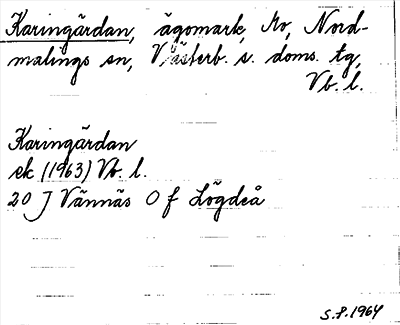 Karingärdan, ägomark, Mo, Nord-
malings sn, Västerb. s. doms. tg,
Vb. l.
Karingärdan
ek (1963) Vb. l.
20 J Vännäs O f Lögdeå
S.P. 1964